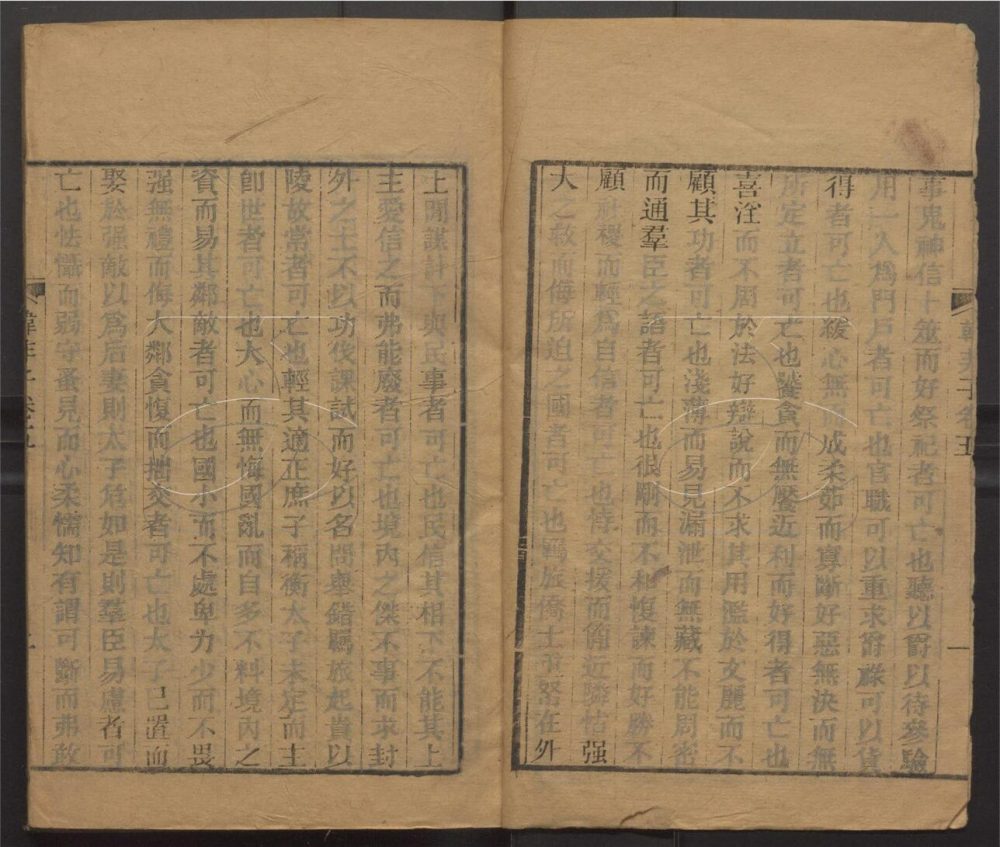 事鬼神信卜筮而好祭祀者可亡也聽以爵以待參驗
用一人爲門戶者可亡也官職可以重求爵祿可以貨
得者可亡也緩心無而成柔茹而寡斷好惡無決而無
所定立者可亡也饕貪而無饜近利而好得者可亡也
喜淫而不周於法好辯說而不求其用濫於文麗而不
顧其功者可亡也淺薄而易見漏泄而無藏不能周密
而通羣臣之語者可亡也很剛而不和愎諫而好勝不
顧社稷而輕爲自信者可亡也恃交援而簡近隣怙强
大之救而侮所迫之國者可亡也羈旅僑士重帑在外
韓非子卷五
一
上閒謀計下與民事者可亡也民信其相下不能其上
主愛信之而弗能廢者可亡也境內之傑不事而求封
外之士不以功伐課試而好以名問舉錯羈旅起貴以
陵故常者可亡也輕其適正庶子稱衡太子未定而主
卽世者可亡也大心而無悔國亂而自多不料境內之
資而易其鄰敵者可亡也國小而不處卑力少而不畏
强無禮而侮大鄰貪愎而拙交者可亡也太子已置而
娶於强敵以爲后妻則太子危如是則羣臣易慮者可
亡也怯懾而弱守蚤見而心柔懦知有謂可斷而弗敢
韓非子卷五